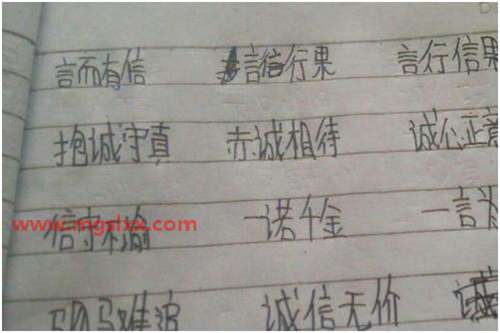 言而有信 言信行果 言行信果
抱诚守真 赤诚相待 诚心正意
信守不渝 一诺千金 一言为
驷马难追 诚信无价